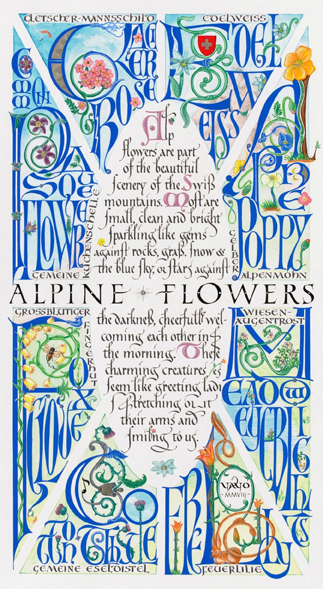 GLETSCHER-MANNSSCHILD
EDELWEISS
ROSE
EDELWEISS
Alp
flowers are part
of the beautiful
scenery of the Swiß
mountains. Most are
small, clean and bright
sparkling like gems
against rocks, grass, snow &
the blue sky, or stars against
PASQUE
FLOWR
GEMEINE KUCHENSCHELLE
ALPINE
POPPY
GELBER ALPENMOHN
ALPINE FLOWERS
the darkness, cheerfully wel-
coming each other in
the morning. These
charming creatures
seem like greeting ladi
stretching out
their arms and
smiling to us.
GROSSBLÜTIGER FINGERHUT
FOX
GLOVE
WIESEN-
AUGENTROST
MEADOW
EYEBRIGHT
COTTON
THISTLE
GEMEINE ESELDISTEL
FIRE
LILY
MMVIII
FEUERLILIE